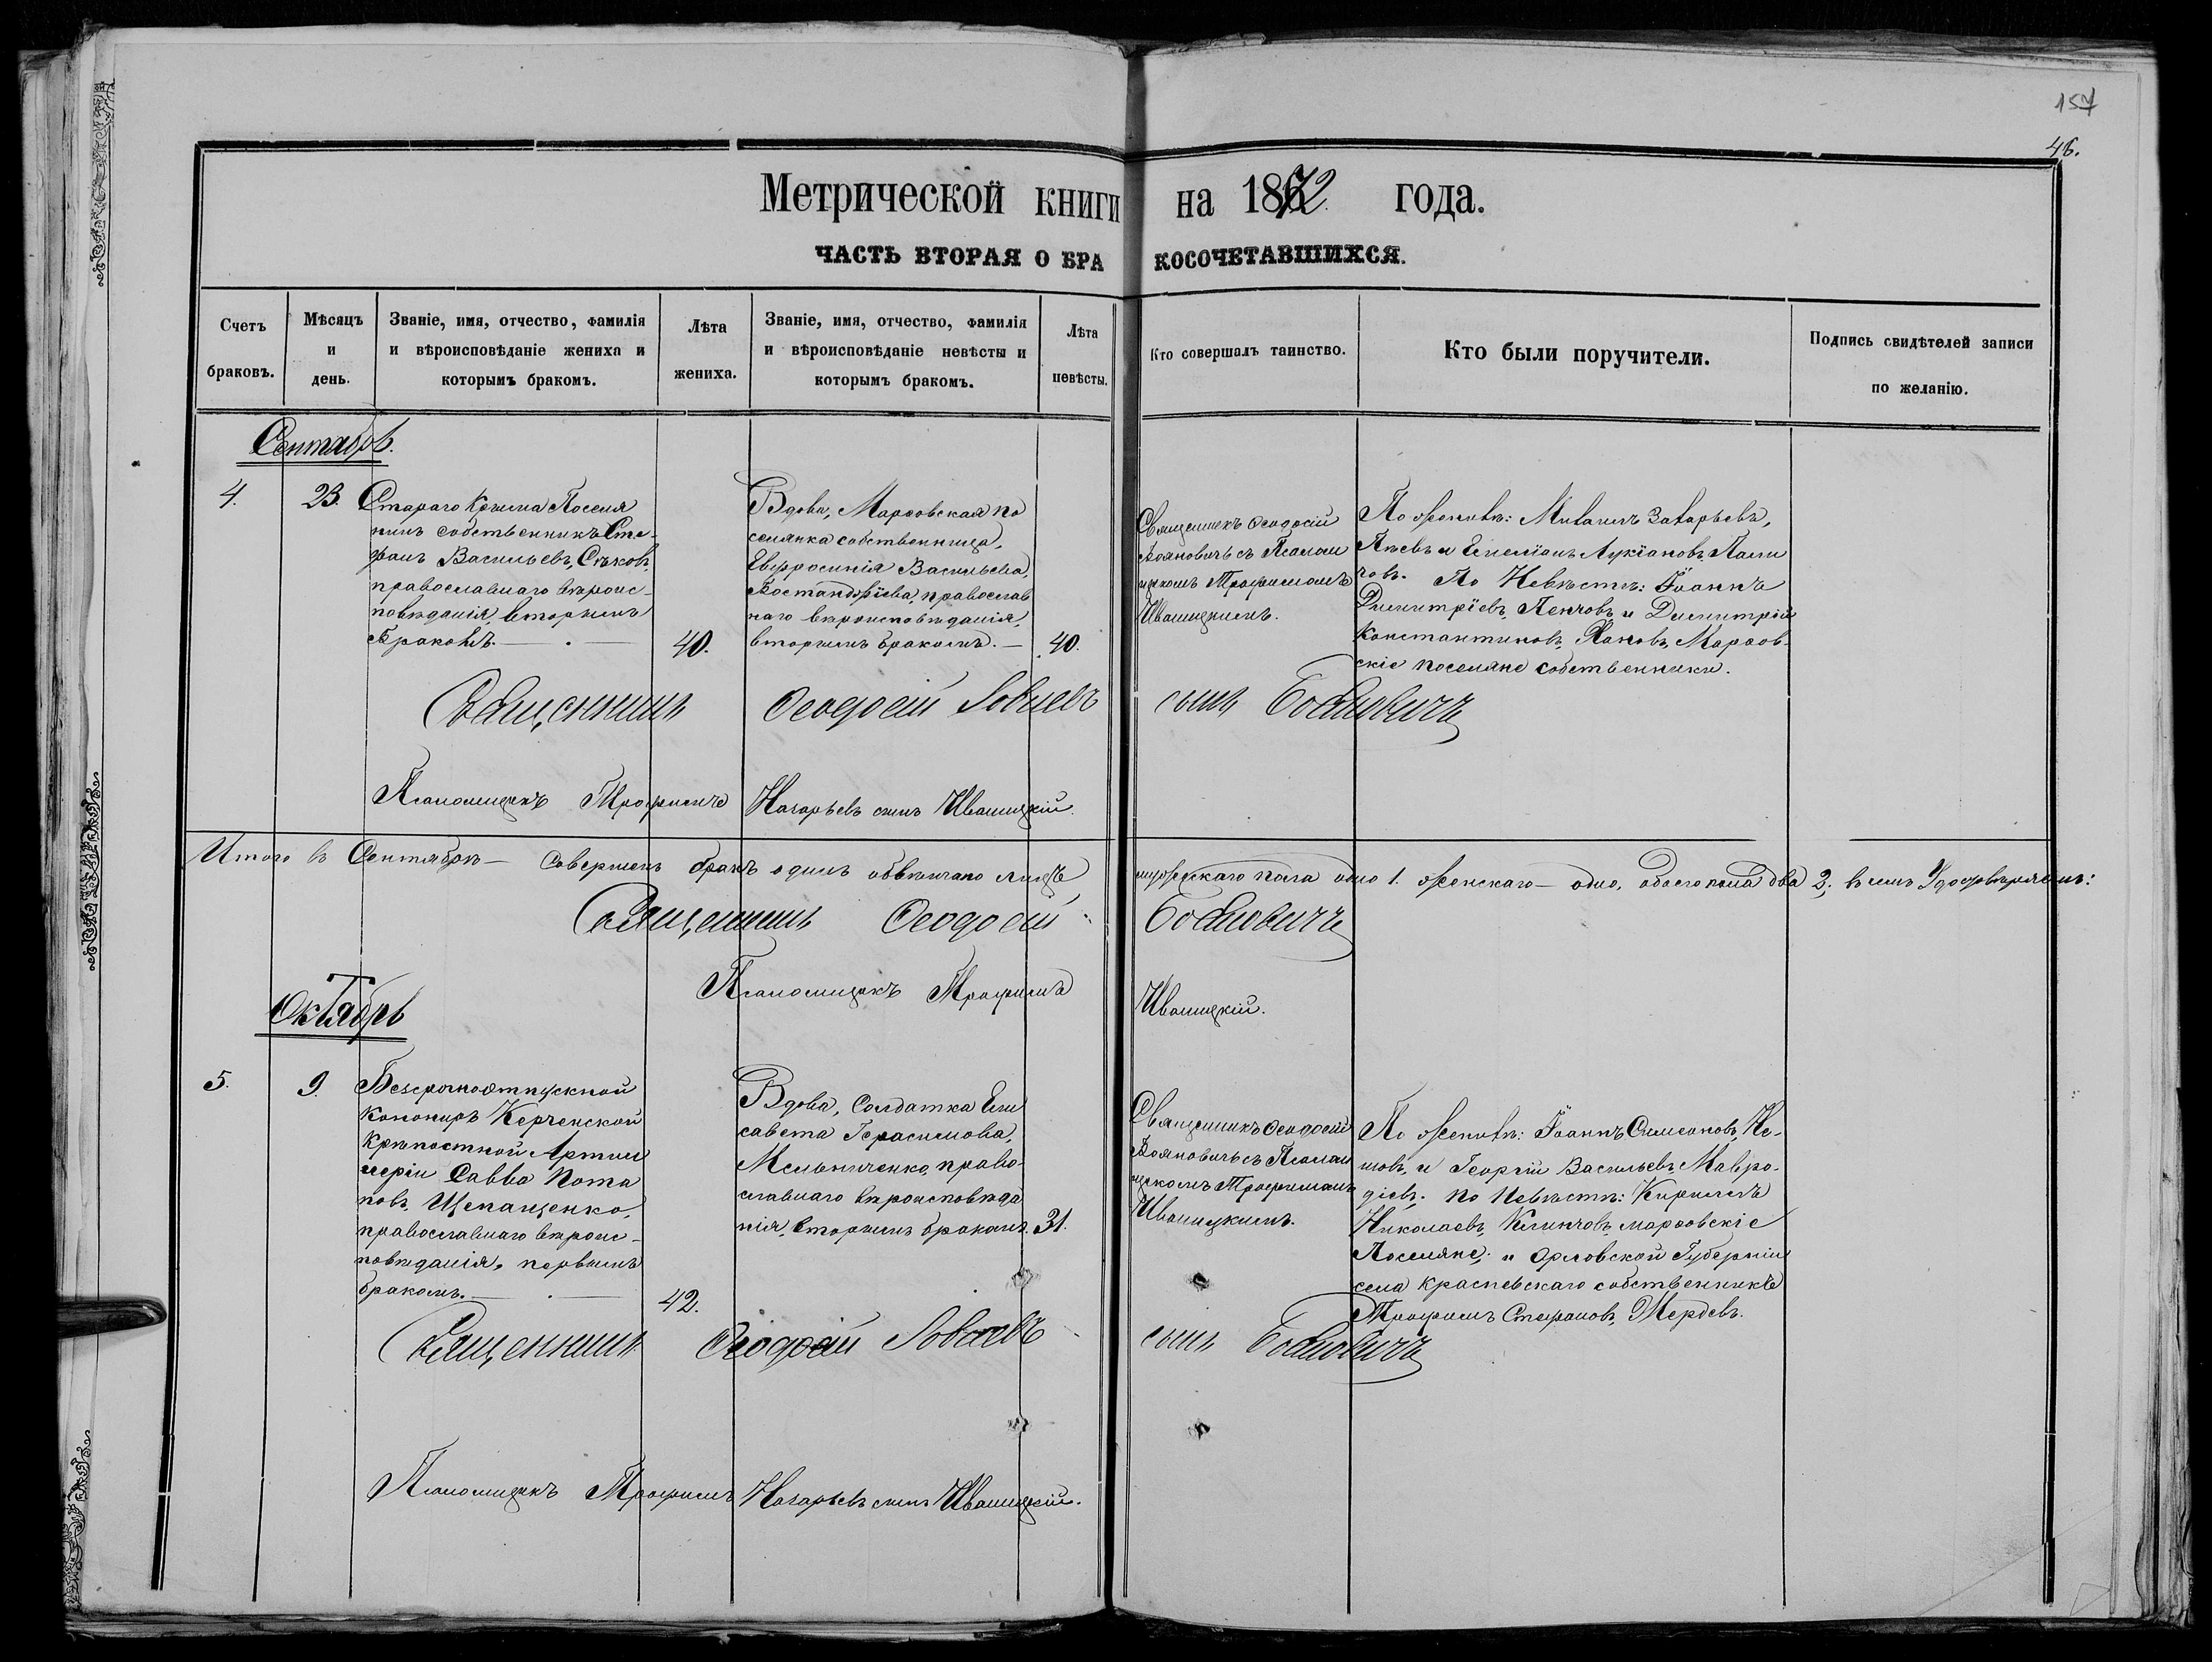 157
46.
Метрической книги на 1872. года.
ЧАСТЬ ВТОРАЯ О БРАКОСОЧЕТАВШИХСЯ.
Счетъ
браковъ.
Мѣсяцъ
и
день.
Званіе, имя, отчество, фамилія
и вѣроисповѣданіе жениха и
которымъ бракомъ.
Лѣта
жениха.
Званіе, имя, отчество, фамилія
и вѣроисповѣданіе невѣсты и
которымъ бракомъ.
Лѣта
невѣсты.
Кто совершалъ таинство.
Кто были поручители.
Подпись свидѣтелей записи
по желанію.
Сентябрь.
4.
23.
Стараго Крыма Поселя
нинъ собственникъ Сте-
фанъ Васильевъ,
православнаго вѣроис-
повѣданія, вторымъ
бракомъ.
40.
Вдова, Марфовская по
селянка собственница,
Евфросинія Васильева,
Костандіева, православ
наго вѣроисповѣданія,
вторымъ бракомъ.
40.
Священникъ Ѳеодосій
Бояновичъ съ Псалом
щикомъ Трофимомъ
Ивашицкимъ.
По Женихѣ: Михаилъ Захарьевъ,
и Емеліанъ Лукіановъ,
По Невѣстѣ: Іоаннъ
Димитріевъ, Пенчовъ, и Димитрій
Константиновъ, Марфов-
скіе поселяне собственники.
Священникъ Ѳеодосій сынъ Бояновичъ
Псаломщикъ Трофимъ Назарьевъ сынъ Ивашицкій.
Итого въ Сентябрѣ — совершенъ бракъ одинъ обвѣнчано лицъ мужескаго пола одно 1. женскаго — одно, обоего пола два 2; въ чемъ Удостовѣряемъ:
Священникъ Ѳеодосій Бояновичъ
Псаломщикъ Трофимъ Ивашицкій.
Октябрь
5.
9.
Безсрочноотпускной
Канониръ Керченской
Крѣпостной Артил
леріи Савва Пота
повъ, Щепащенко,
православнаго вѣроис-
повѣданія, первымъ
бракомъ.
42.
Вдова, Солдатка Ели
савета Герасимова,
Мельниченко, право-
славнаго вѣроисповѣда
нія, вторымъ бракомъ.
31.
Священникъ Ѳеодосій
Бояновичъ съ Псалом
щикомъ Трофимомъ
Ивашицкимъ.
По Женихѣ: Іоаннъ Симеоновъ, Не-
новъ, и Георгій Васильевъ Мавро-
діевъ. По Невѣстѣ: Кириллъ
Николаевъ, Клинчовъ, марфовскіе
Поселяне; и Орловской Губерніи
села Краснеескаго собственникъ
Трофимъ Стефановъ,
Священникъ Ѳеодосій сынъ Бояновичъ
Псаломщикъ Трофимъ Назарьевъ сынъ Ивашицкій.